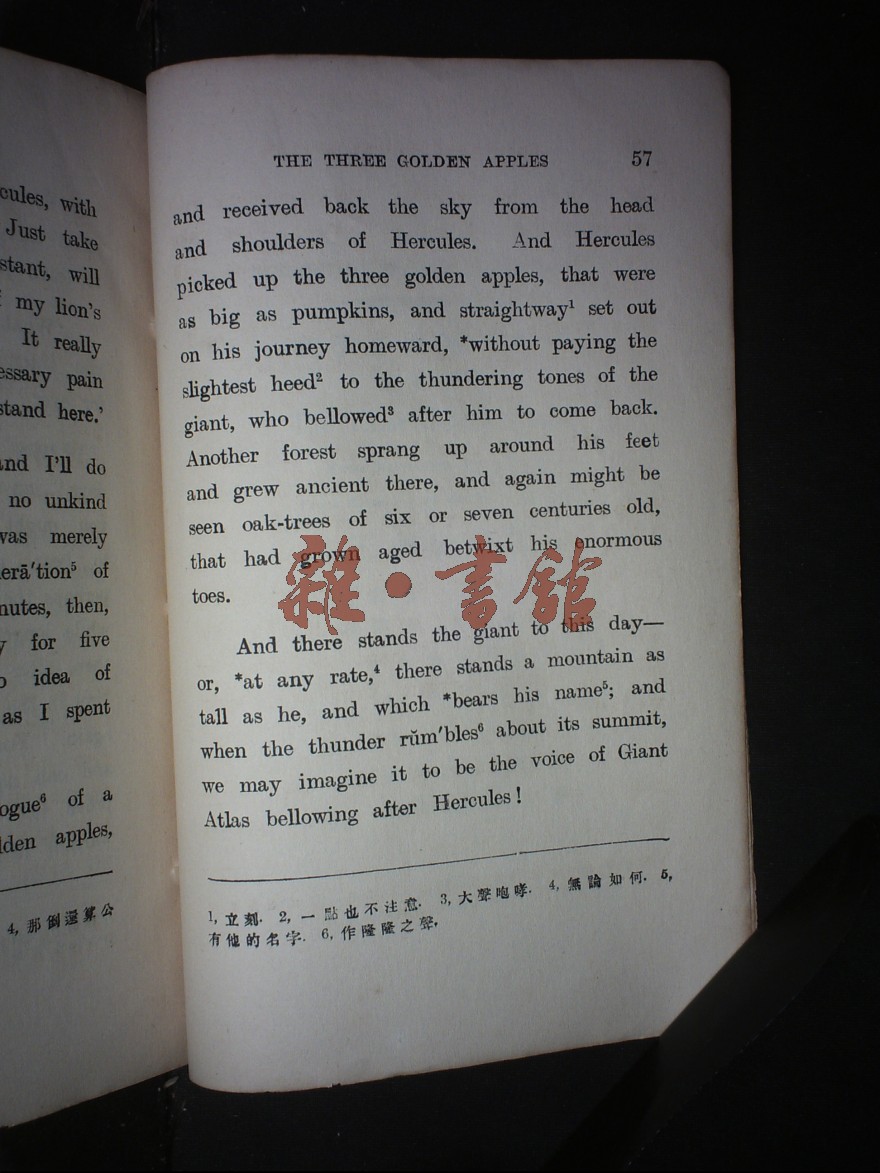 cules, with
Just take
stant, will
my lion's
It really
essary pain
stand here.'
and I'll do
no unkind
was merely
erā′tion⁵ of
nutes, then,
for five
idea of
as I spent
ogue⁶ of a
lden apples,
4, 那倒還算公
THE THREE GOLDEN APPLES 57
and received back the sky from the head
and shoulders of Hercules. And Hercules
picked up the three golden apples, that were
as big as pumpkins, and straightway¹ set out
on his journey homeward, *without paying the
slightest heed² to the thundering tones of the
giant, who bellowed³ after him to come back.
Another forest sprang up around his feet
and grew ancient there, and again might be
seen oak-trees of six or seven centuries old,
that had grown aged betwixt his enormous
toes.
And there stands the giant to this day—
or, *at any rate,⁴ there stands a mountain as
tall as he, and which *bears his name⁵; and
when the thunder rŭm′bles⁶ about its summit,
we may imagine it to be the voice of Giant
Atlas bellowing after Hercules!
1, 立刻. 2, 一點也不注意. 3, 大聲咆哮. 4, 無論如何. 5,
有他的名字. 6, 作隆隆之聲.
雜·書館